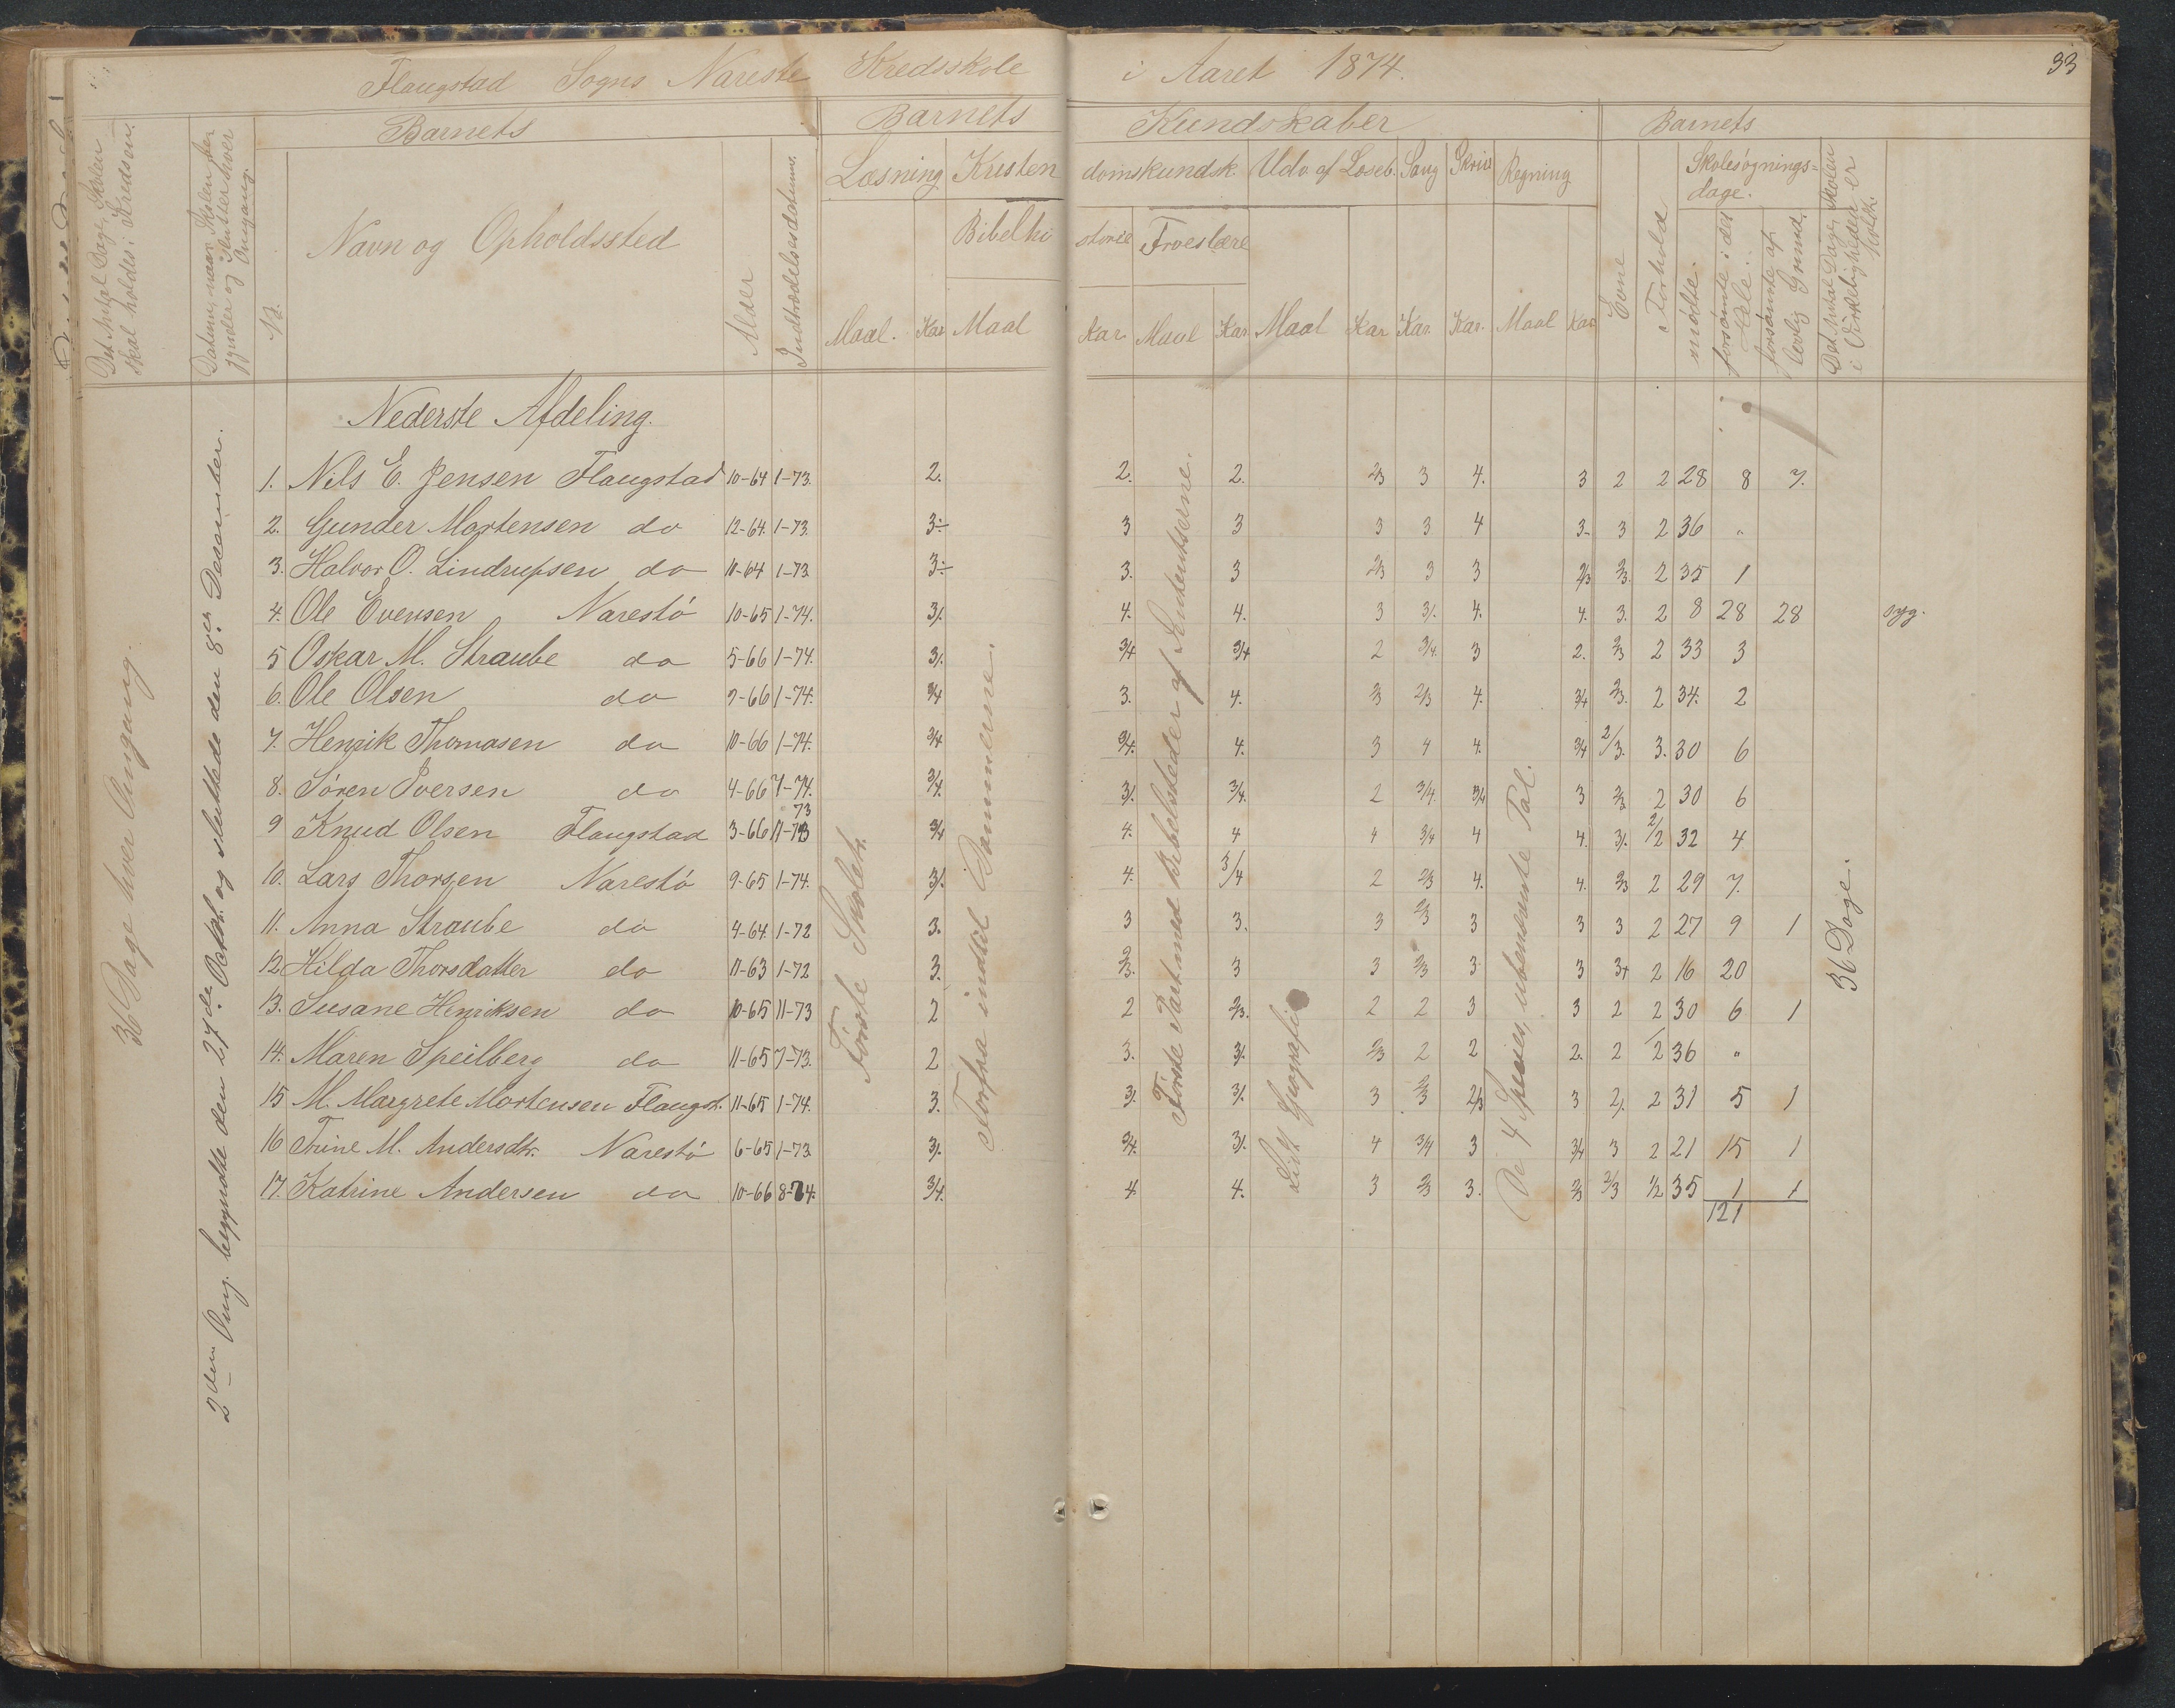 Flaugstad Sogns Narestø Kredsskole i Aaret 1874. 33
Barnets Barnets Kundskaber Barnets
Det Antal Dage, Skolen skal holdes i Kredsen.
Datum, naar Skolen begynder og slutter hver Omgang.
No.
Navn og Opholdssted
Alder
Indtrædelsesdatum.
Læsning Kristendomskundsk. Udv. af Læseb. Sang Skriv Regning
Bibelhistorie Troeslære
Maal. Kar Maal Kar Maal Kar Maal Kar Kar Kar. Maal Kar
Evne
Forhold
Skolesøgnings-dage.
mødte.
forsømte i det Hele.
forsømte af lovlig Grund.
Det Antal Dage, Skolen i Virkeligheden er holdt.
Nederste Afdeling.
1. Nils E. Jensen Flaugstad 10-64 1-73. 2. 2. 2. 2/3 3 4. 3 2 2 28 8 7.
2. Gunder Mortensen do 12-64. 1-73. 3÷ 3 3 3 3 4 3- 3 2 36 "
3. Halvor O. Lindrupsen do 11-64 1-73 3÷ 3. 3 2/3 3 3 2/3 2/3. 2 35 1
4. Ole Evensen Narestø 10-65 1-74. 3/. 4. 4. 3 3/. 4. 4. 3. 2 8 28 28 syg.
5 Oskar M. Straube do 5-66 1-74. 3/. 3/4 3/4 2 3/4. 3 2. 2/3 2 33 3
6. Ole Olsen do 9-66 1-74. 3/4 3. 4. 2/3 2/3 4. 3/4 2/3. 2 34. 2
7. Henrik Thomasen do 10-66 1-74. 3/4 3/4. 4. 3 4 4. 3/4 2/3. 3. 30 6
8. Søren Iversen do 4-66 7-74. 3/4. 3/. 3/4. 2 3/4. 3/4 3 2/3 2 30 6
9 Knud Olsen Flaugstad 3-66 11-73 73 3/4 4. 4 4 3/4 4 4. 3/. 2/2 32 4
10. Lars Thorsen Narestø 9-65 1-74. 3/. 4. 3/4 2 2/3 4. 4. 2/3 2 29 7.
11. Anna Straube do 4-64. 1-72 3. 3 3. 3 2/3 3 3 3 2 27 9 1
12. Hilda Thorsdatter do 11-63 1-72 3. 2/3. 3 3 2/3 3 3 3+ 2 16 20
13. Susane Henriksen do 10-65 11-73 2 2 2/3. 2 2 3 3 2 2 30 6 1
14. Maren Speilberg do 11-65 7-73. 2 3. 3/. 2/3 2 2 2. 2 2 36 "
15 M. Margrete Mortensen Flaugst. 11-65 1-74. 3. 3/. 3/. 3 2/3 2/3 3 2/. 2 31 5 1
16 Trine M. Andersdtr. Narestø 6-65 1-73 3/. 3/4. 3/. 4 3/4 3 3/4 3 2 21 15 1
17. Katrine Andersen do 10-66 8-74. 3/4. 4 4. 3 2/3 3. 2/3 2/3 1/2 35 1 1
121
36 Dage hver Omgang.
2den Omg. begyndte den 27de Octbr. og sluttede den 8de December.
Første Skoletr.
Forfra indtil Dommerne.
Første Part med Bibelsteder af Sententserne.
Lidt Geografi
De 4 Species, ubenævnte Tal.
36 Dage.